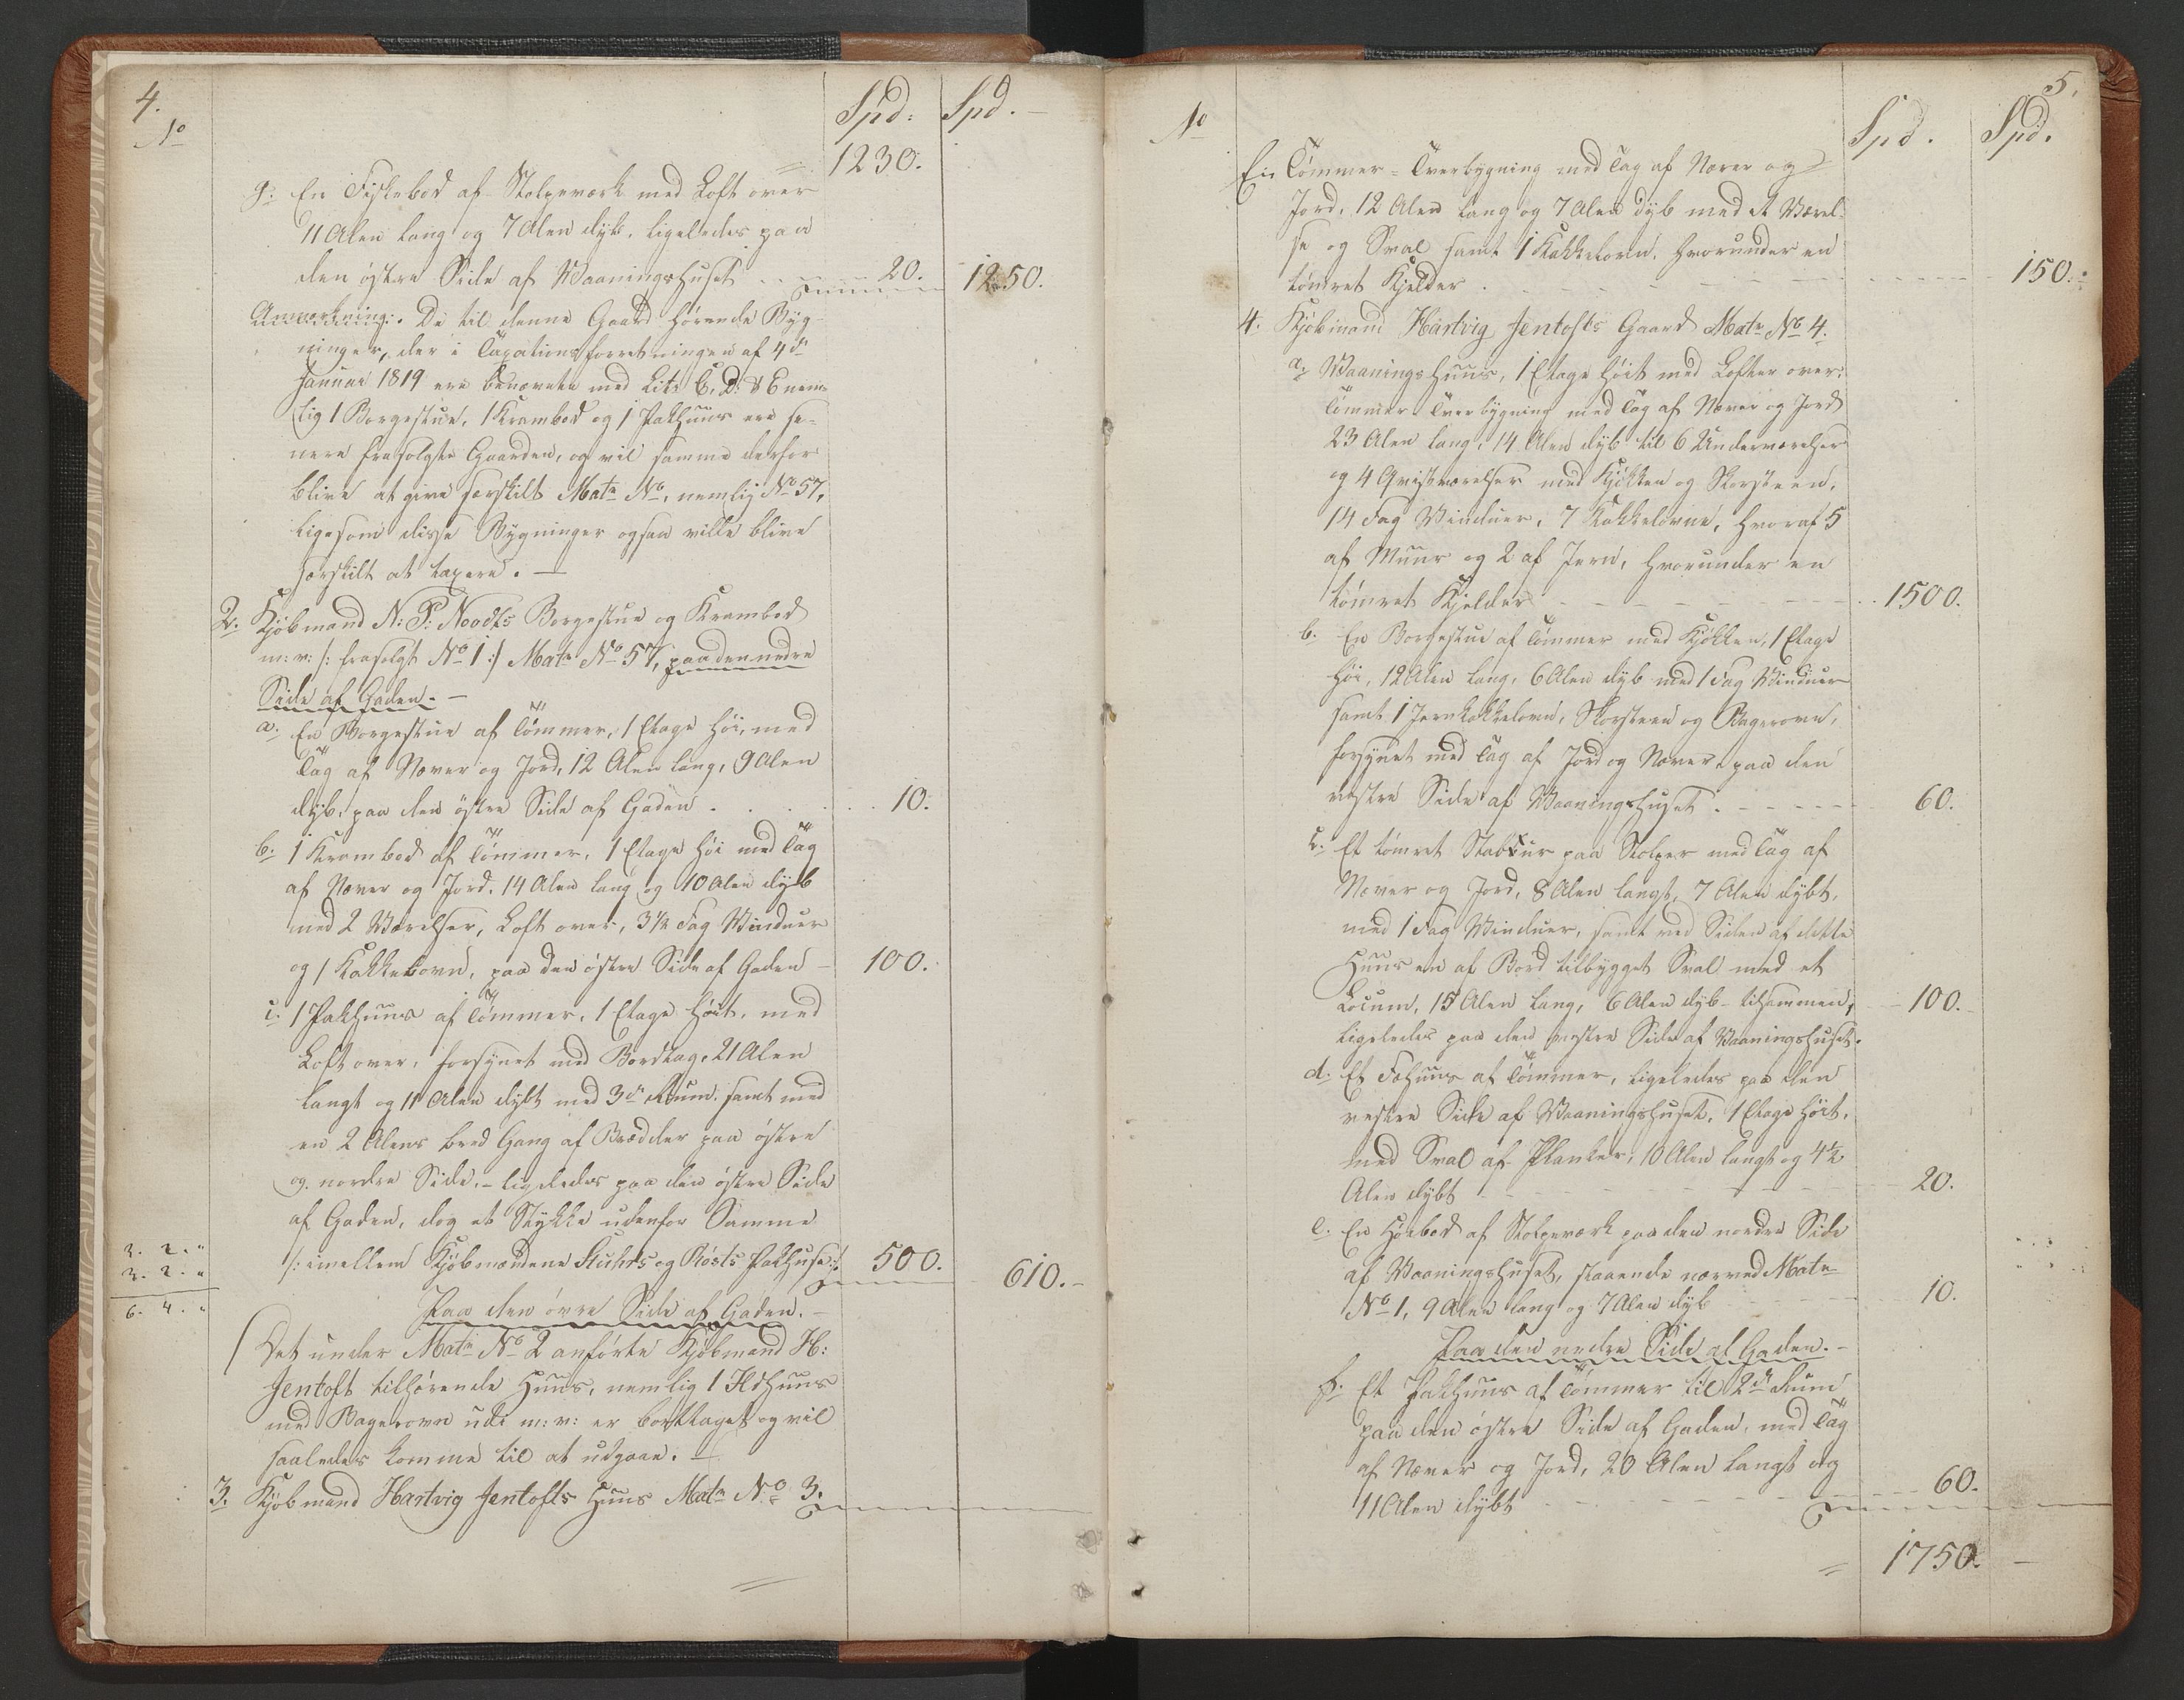 4.
No
Spd: Spd.
1230.
g: En Fiskebod af Stolpeværk med Loft over
11 Alen lang og 7 Alen dyb, ligeledes paa
den østre Side af Vaaningshuset 20. 1250.
Anmærkning: De til denne Gaard hørende Byg-
ninger, der i Taxationsforretningen af 4de
Januar 1819 ere benævnte med Litr C, D: & E nem-
lig 1 Borgestue, 1 Krambod og 1 Pakhuus ere se-
nere frasolgte Gaarden, og vil samme derfor
blive at give særskilt Matr No, nemlig No 57,
ligesom disse Bygninger ogsaa ville blive
særskilt at taxere. —
2. Kjøbmand N: P: Noodts Borgestue og Krambod
m: v: /: frasolgt No 1 :/ Matr No 57, paa den nedre
Side af Gaden. —
a. En Borgestue af Tømmer, 1 Etage høi, med
Tag af Næver og Jord, 12 Alen lang, 9 Alen
dyb, paa den østre Side af Gaden . . . . 10.
b. 1 Krambod af Tømmer, 1 Etage høi med Tag
af Næver og Jord, 14 Alen lang og 10 Alen dyb
med 2 Værelser, Loft over, 3½ Fag Vinduer
og 1 Kakkelovn, paa den østre Side af Gaden — 100.
c. 1 Pakhuus af Tømmer, 1 Etage høit, med
Loft over, forsynet med Bordtag, 21 Alen
langt og 11 Alen dybt med 3de Rum, samt med
en 2 Alens bred Gang af Brædder paa østre
og nordre Side, - ligeledes paa den østre Side
af Gaden, dog et Stykke udenfor Samme
/: imellem Kjøbmændene Stuhrs og Røsts Pakhuse :/ 500. 610. -
3. 2. "
3. 2. "
6. 4. "
Paa den øvre Side af Gaden. —
Det under Matr No 2 anførte Kjøbmand H:
Jentoft tilhørende Huus, nemlig 1 Ildhuus
med Bagerovn udi m: v: er borttaget og vil
saaledes komme til at udgaae. —
3. Kjøbmand Hartvig Jentofts Huus Matr No 3.
5.
No
Spd. Spd.
En Tømmer-Tverbygning med Tag af Næver og
Jord, 12 Alen lang og 7 Alen dyb med et Værel-
se og Sval samt 1 Kakkelovn, hvorunder en
tømret Kjelder . 150. -
4. Kjøbmand Hartvig Jentofts Gaard Matr No 4.
a. Vaaningshuus, 1 Etage høit med Lofter over,
Tømmer-Tverbygning med Tag af Næver og Jord
23 Alen lang, 14 Alen dyb til 6 Underværelser
og 4 Qvistværelser med Kjøkken og Skorsteen,
14 Fag Vinduer, 7 Kakkelovne, hvoraf 5
af Muur og 2 af Jern, hvorunder en
tømret Kjelder 1500.
b. En Borgestue af Tømmer med Kjøkken, 1 Etage
høi, 12 Alen lang, 6 Alen dyb med 1 Fag Vinduer
samt 1 Jernkakkelovn, Skorsteen og Bagerovn,
forsynet med Tag af Jord og Næver paa den
vestre Side af Vaaningshuset . 60.
c. Et tømret Stabbur paa Stolper med Tag af
Næver og Jord, 8 Alen langt, 7 Alen dybt,
med 1 Fag Vinduer, samt ved Siden af dette
Huus en af Bord tilbygget Sval med et
Locum, 15 Alen lang, 6 Alen dyb tilsammen, 100.
ligeledes paa den vestre Side af Vaaningshuset.
d. Et Fæhuus af Tømmer, ligeledes paa den
vestre Side af Vaaningshuset, 1 Etage høit,
med Sval af Planker, 10 Alen langt og 4½
Alen dybt 20.
e. En Høebod af Stolpeværk paa den nordre Side
af Vaaningshuset, staaende nærved Matr
No 1, 9 Alen lang og 7 Alen dyb 10.
Paa den nedre Side af Gaden. -
f. Et Pakhuus af Tømmer til 2de Rum
paa den østre Side af Gaden, med Tag
af Næver og Jord, 20 Alen langt og
11 Alen dybt 60.
1750. —